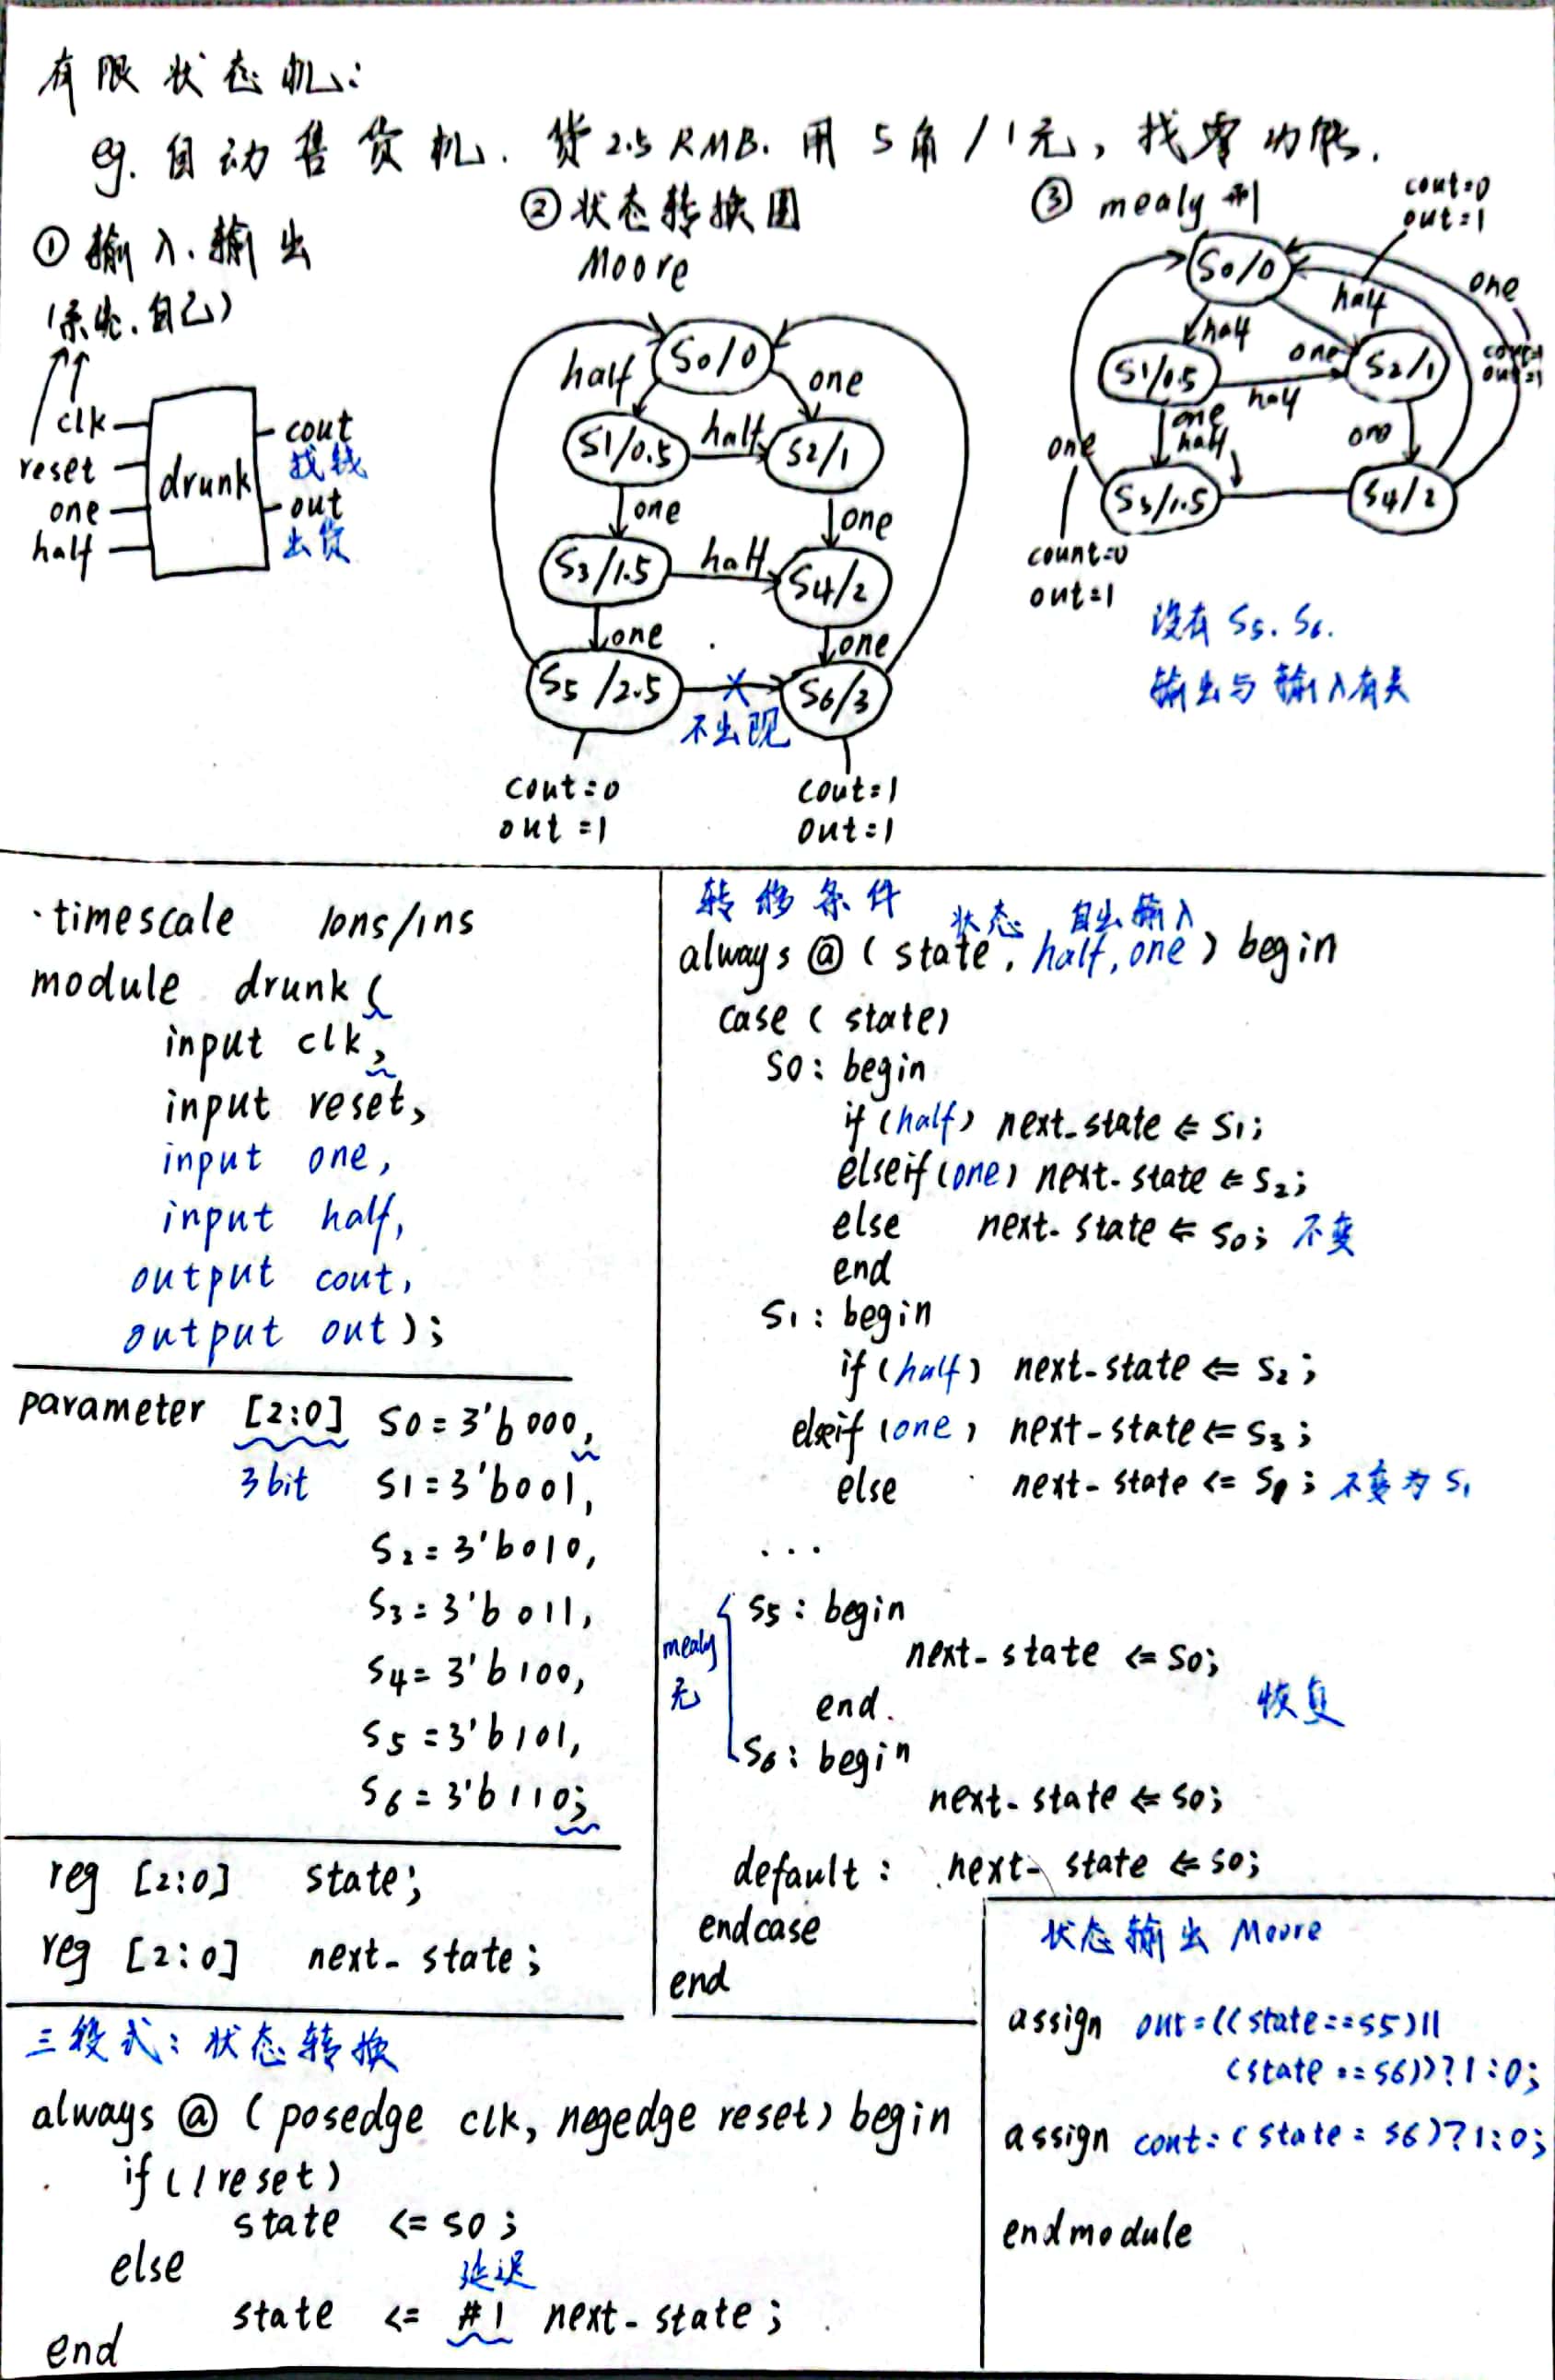 有限状态机:
eg. 自动售货机. 货2.5 RMB. 用 5角/1元, 找零功能.
① 输入.输出
(系统.自己)
clk
reset
one
half
drunk
cout
找钱
out
出货
② 状态转换图
Moore
S0/0
half
one
S1/0.5
half
S2/1
one
one
S3/1.5
half
S4/2
one
one
S5/2.5
S6/3
不出现
cout=0
out=1
cout=1
out=1
③ mealy 机
cout=0
out=1
S0/0
half
half
one
S1/0.5
one
half
S2/1
cout=1
out=1
one
half
one
one
S3/1.5
S4/2
count=0
out=1
没有 S5. S6.
输出与输入有关
·timescale 10ns/1ns
module drunk (
input clk,
input reset,
input one,
input half,
output cout,
output out);
parameter [2:0] S0=3'b000,
3bit S1=3'b001,
S2=3'b010,
S3=3'b011,
S4=3'b100,
S5=3'b101,
S6=3'b110;
reg [2:0] state;
reg [2:0] next_state;
三段式: 状态转换
always @ (posedge clk, negedge reset) begin
if (!reset)
state <= S0;
else
延迟
state <= #1 next_state;
end
转移条件
状态 自出输入
always @ (state, half, one) begin
case (state)
S0: begin
if (half) next_state <= S1;
elseif (one) next_state <= S2;
else next_state <= S0; 不变
end
S1: begin
if (half) next_state <= S2;
elseif (one) next_state <= S3;
else next_state <= S1; 不变为 S1
...
S5: begin
mealy
无
next_state <= S0;
end.
恢复
S6: begin
next_state <= S0;
default: next_state <= S0;
endcase
end
状态输出 Moore
assign out=((state==S5)||
(state==S6))?1:0;
assign cout=(state=S6)?1:0;
endmodule